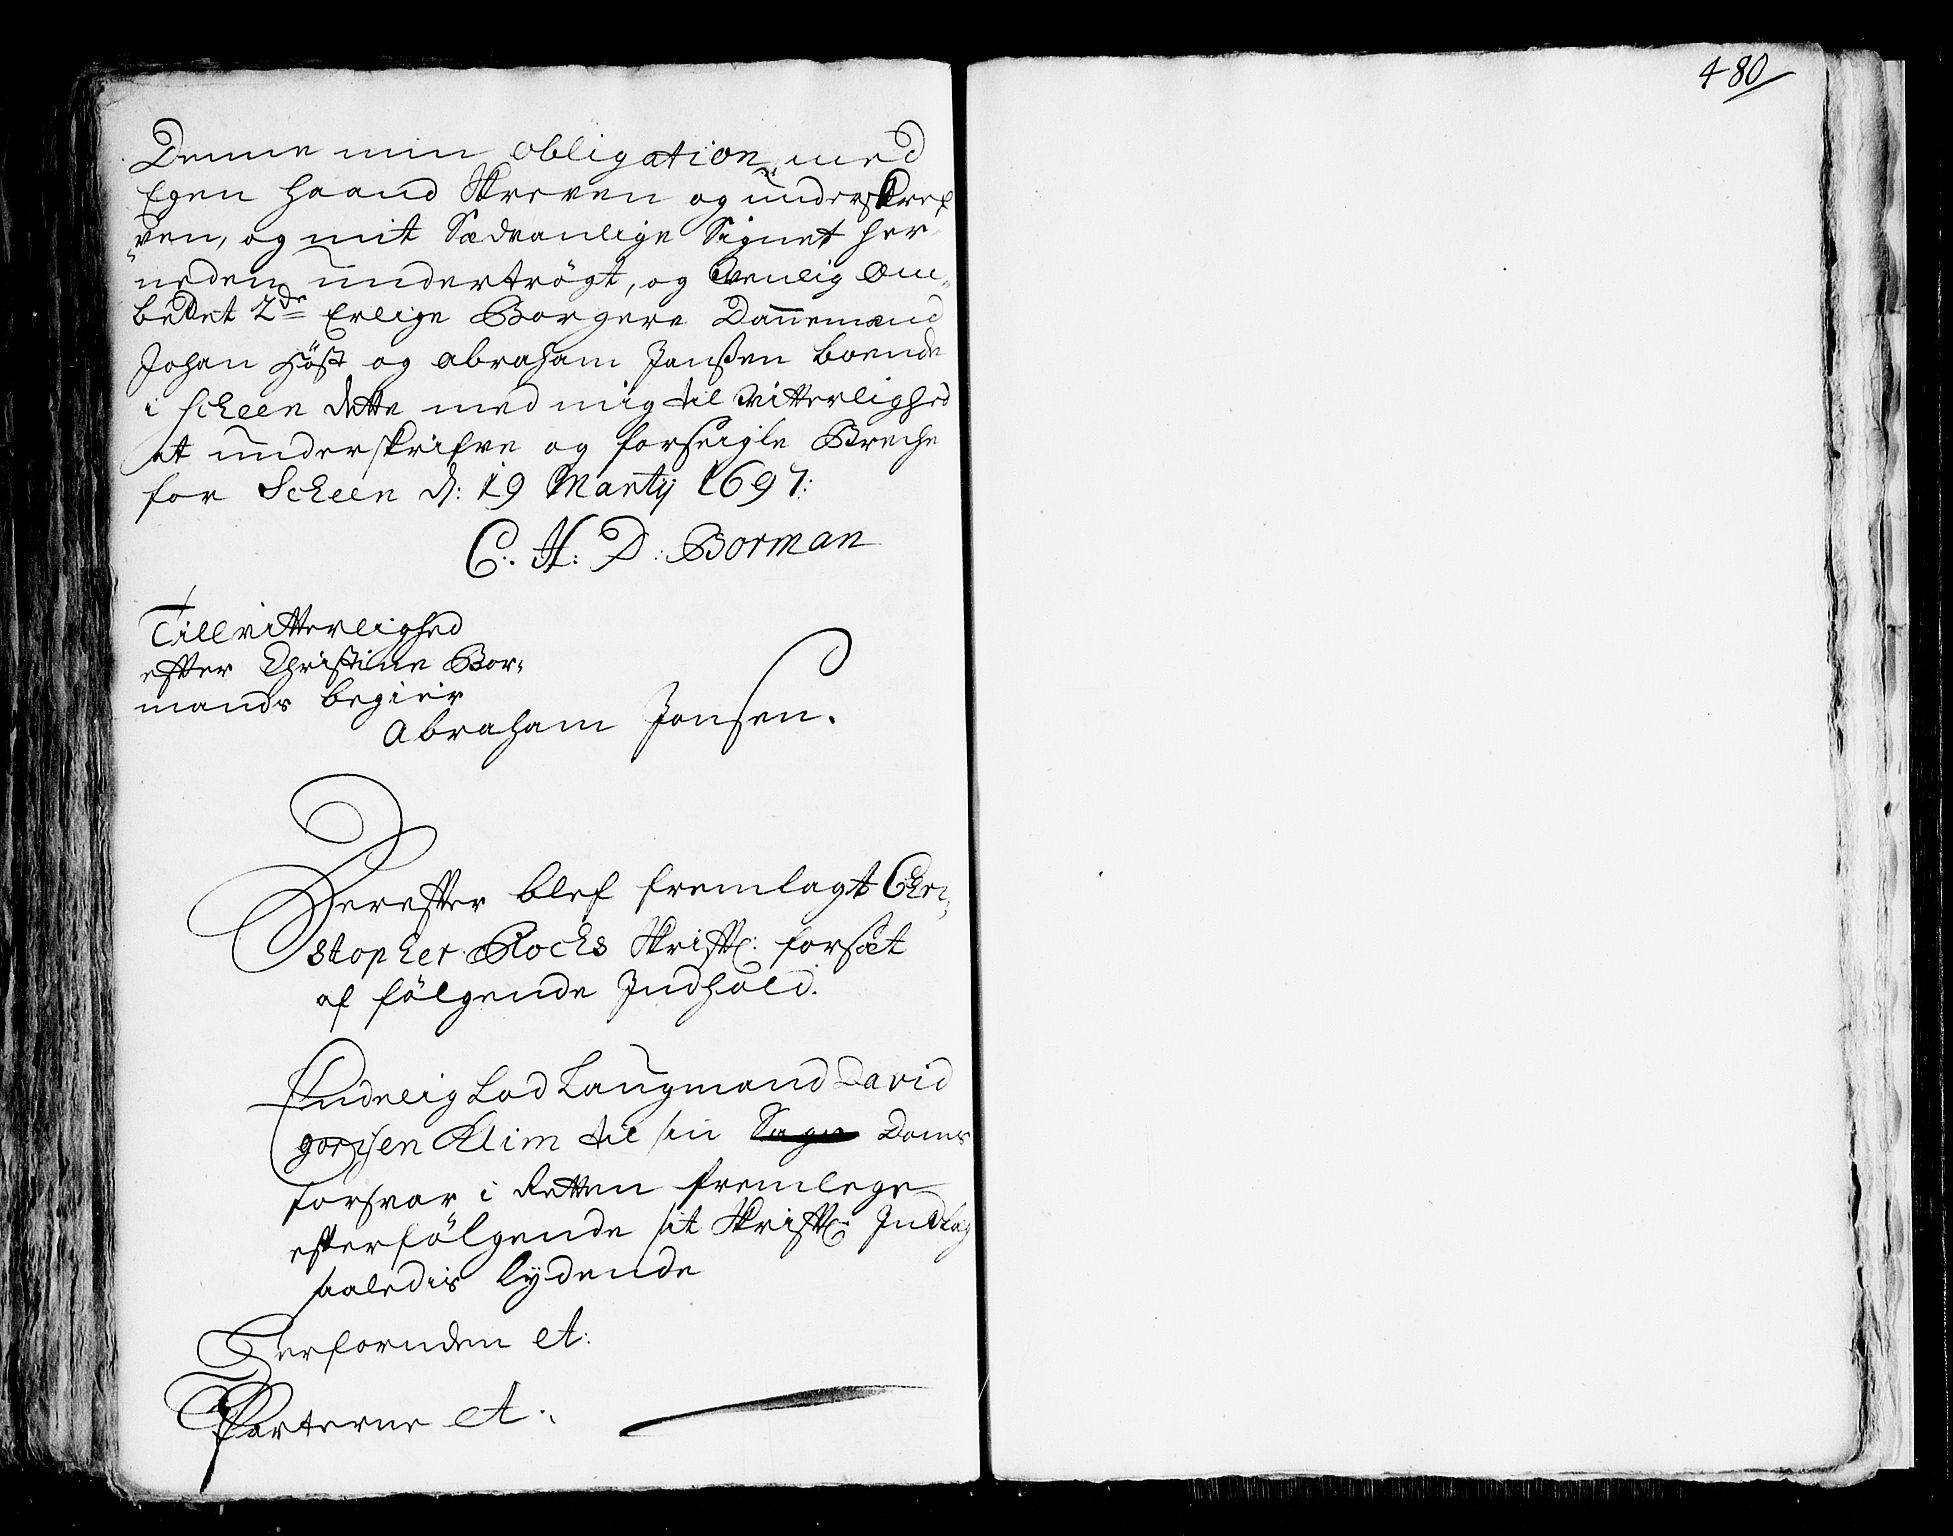 Denne min obligation med
Egen haand Skreven og underskref
ven, og mit Sædvanlige Signet her
neden undertrögt, og venlig Om-
bedet 2de Erlige Borgere Dannemænd
Johan Höst og Abraham Janßen boende
i Scheen dette med mig til Vitterlighed
at underskrifve og forseigle Breche
for Scheen d: 19 Martij 1697:
C: H: D: Borman
Till vitterlighed
efter Christine Bor-
mands begier
Abraham Jansen.
Derefter blef fremlagt Chri-
stopher Blochs Skriftl: forsæt
af fölgende Indhold.
Endelig Lod Laugmand David
gorisen Klim til sin Sags Doms
forsvar i Retten fremlege
efterfölgende sit Skriftl: Indlæg
saaledis lydende
Herforuden et:
Parterne et:
480